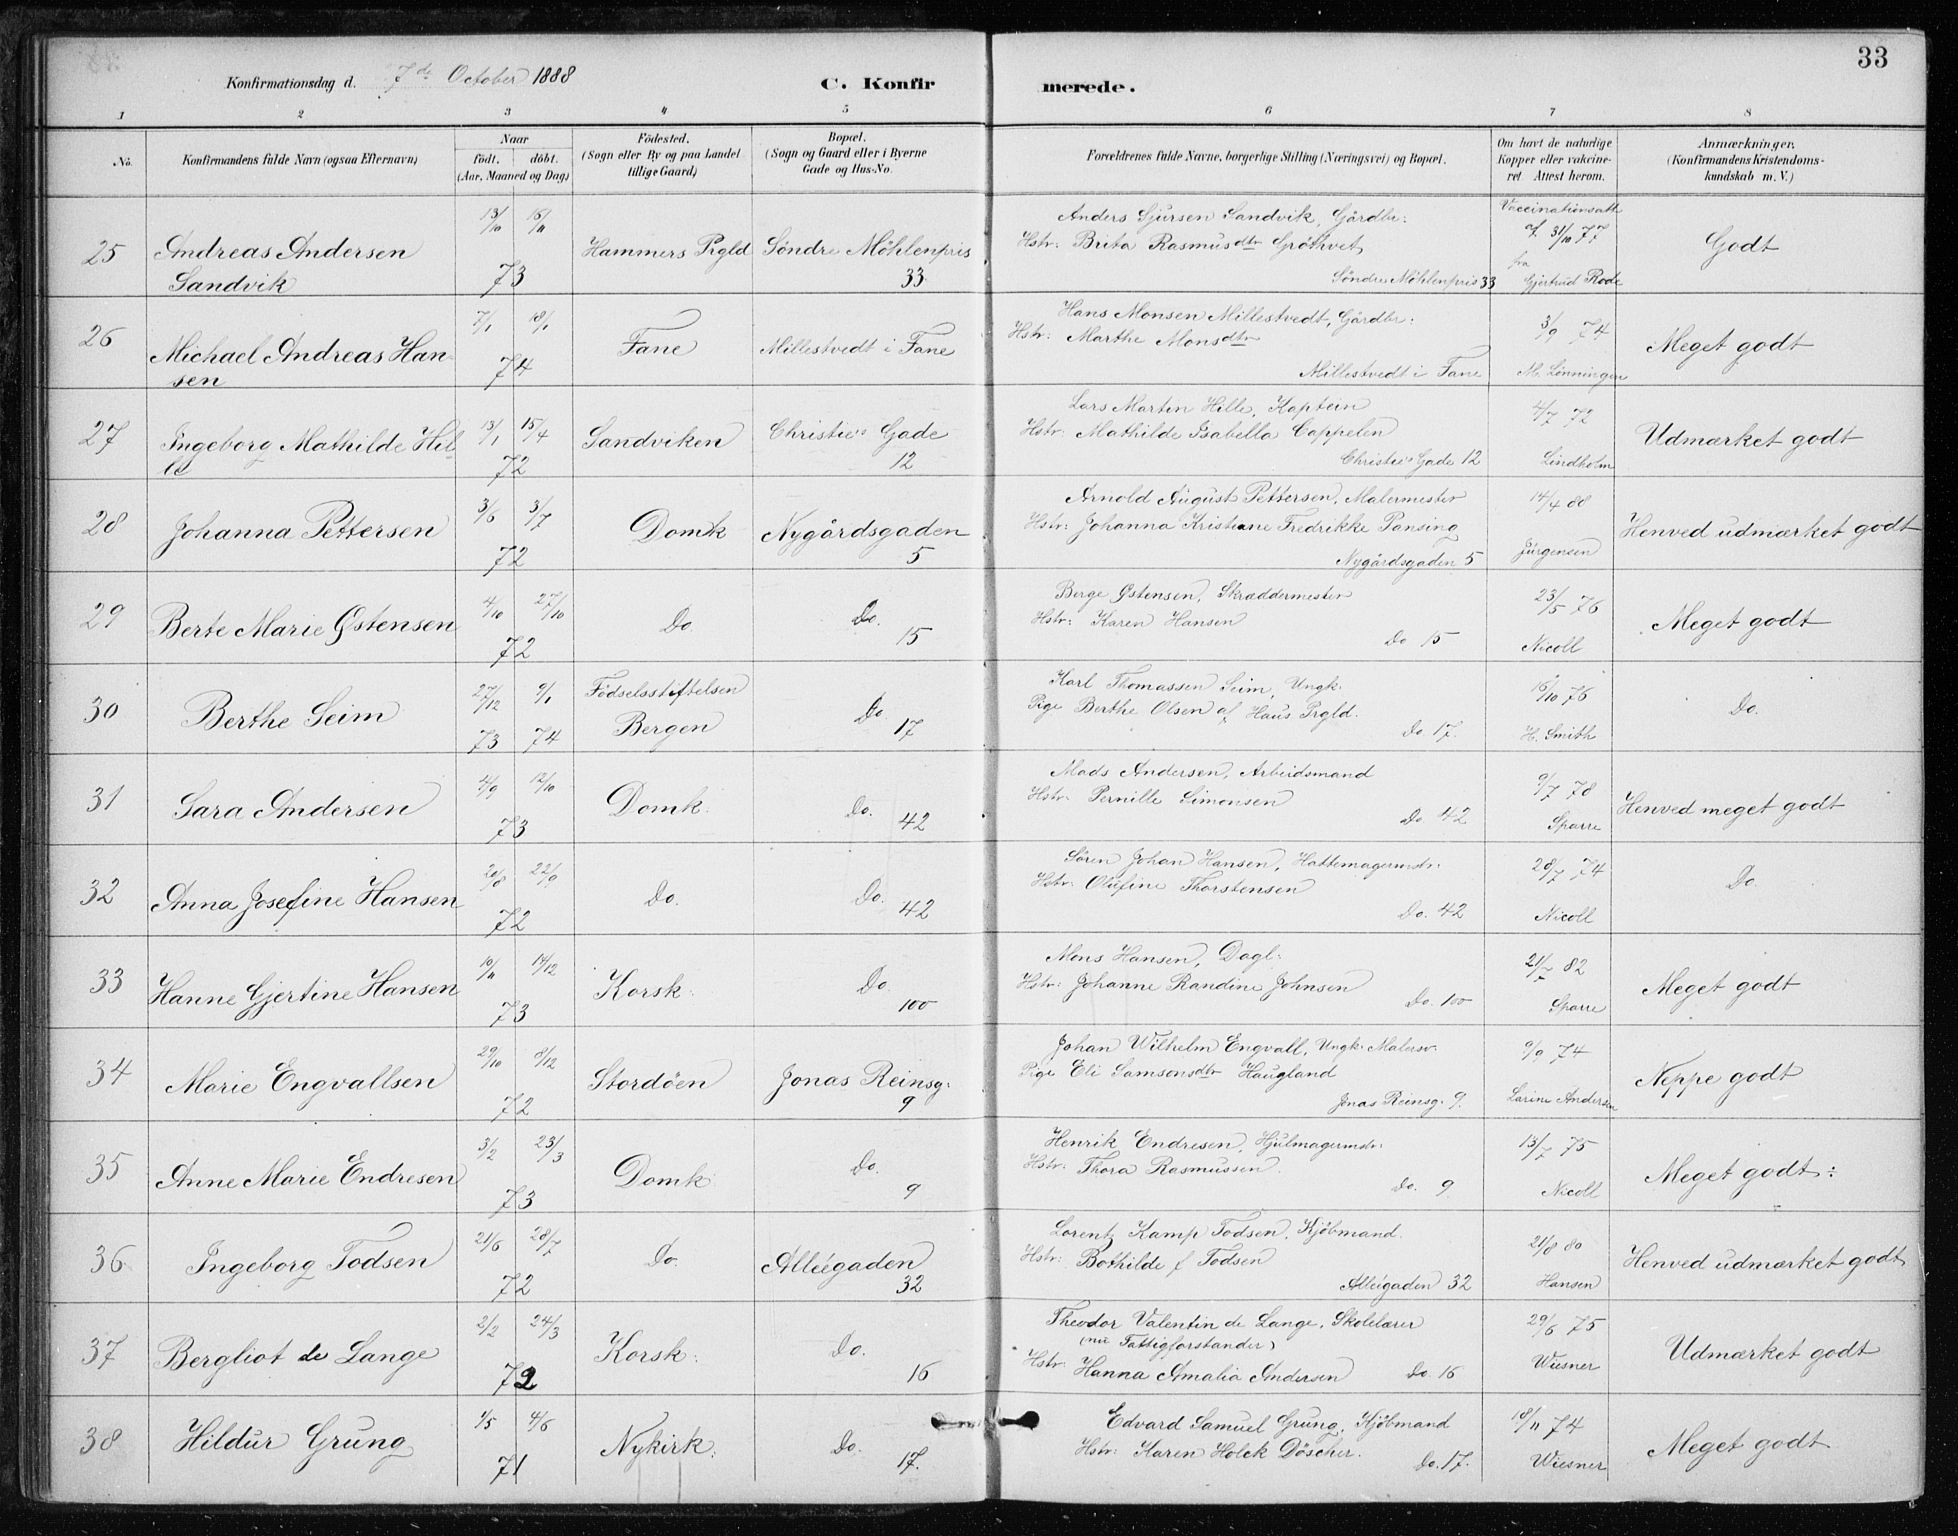 33
Konfirmationsdag d. 7de October 1888 C. Konfirmerede.
1 2 3 4 5 6 7 8
No. Konfirmandens fulde Navn (ogsaa Efternavn) Naar födt. döbt. (Aar, Maaned og Dag) Födested. (Sogn eller By og paa Landet tillige Gaard) Bopæl. (Sogn og Gaard eller i Byerne Gade og Hus-No. Forældrenes fulde Navne, borgerlige Stilling (Næringsvei) og Bopæl. Om havt de naturlige Kopper eller vakcineret. Attest herom. Anmærkninger. (Konfirmandens Kristendomskundskab m. V.)
25 Andreas Andersen Sandvik 13/10 16/11 73 Hammers Prgld Søndre Möhlenpris 33
Anders Sjursen Sandvik, Gårdbr:
Hstr: Brita Rasmusdtr Gröthvet
Söndre Möhlenpris 33
Vaccinationsatt. f. 31/10 77 fra Gjertrud Rode Godt
26 Michael Andreas Hansen 7/1 18/1 74 Fane Millestvedt i Fane
Hans Monsen Millestvedt, Gårdbr:
Hstr: Marthe Monsdtr
Millestvedt i Fane
3/9 74 M. Lönningen Meget godt
27 Ingeborg Mathilde Hille 13/1 15/4 72 Sandviken Christies Gade 12
Lars Martin Hille, Kaptein
Hstr: Mathilde Isabella Cappelen
Christies Gade 12
4/7 72 Lindholm Udmærket godt
28 Johanna Pettersen 3/6 3/7 72 Domk Nygårdsgaden 5
Arnold August Pettersen, Malermester
Hstr: Johanna Kristiane Fredrikke Pansing
Nygårdsgaden 5
14/4 88 Jürgensen Henved udmærket godt
29 Berte Marie Østensen 4/10 27/10 72 Do Do. 15
Berge Østensen, Skræddermester
Hstr: Karen Hansen
Do 15
23/5 76 Nicoll Meget godt
30 Berthe Seim 27/12 73 9/1 74 Födselsstiftelsen Bergen Do. 17
Karl Thomassen Seim, Ungk.
Pige Berthe Olsen af Haus Prgld.
Do 17.
16/10 76 H. Smith Do.
31 Sara Andersen 4/9 12/10 73 Domk. Do. 42
Mads Andersen, Arbeidsmand
Hstr: Pernille Simonsen
Do 42
9/7 78 Sparre Henved meget godt
32 Anna Josefine Hansen 20/8 22/9 72 Do. Do. 42
Sören Johan Hansen, Hattemagermstr:
Hstr: Olüfine Thorstensen
Do. 42
28/7 74 Nicoll Do
33 Hanne Gjertine Hansen 10/11 14/12 73 Korsk: Do. 100
Mons Hansen, Dagl:
Hstr: Johanne Randine Johnsen
Do. 100
21/7 82 Sparre Meget godt
34 Marie Engvallsen 29/10 8/12 72 Stordöen Jonas Reinsg: 9
Johan Wilhelm Engvall, Ungk. Malersv.
Pige Eli Samsonsdtr Haugland
Jonas Reinsg. 9.
9/9 74 Larine Andersen Neppe godt
35 Anne Marie Endresen 3/2 23/3 73 Domk Do. 9
Henrik Endresen, Hjulmagermstr:
Hstr: Thora Rasmussen.
Do. 9
13/7 75 Nicoll Meget godt ÷
36 Ingeborg Todsen 21/6 28/7 72 Do. Alléegaden 32
Lorentz Kamp Todsen, Kjöbmand.
Hstr: Bothilde f Todsen
Alléegaden 32
21/8 80 Hansen Henved udmærket godt
37 Bergliot de Lange 2/2 24/3 72 Korsk: Do. 16
Theodor Valentin de Lange, Skolelærer
(nu Fattigforstander)
Hstr: Hanna Amalia Andersen Do. 16
29/6 75 Wiesner Udmærket godt
38 Hildur Grung 1/5 4/6 71 Nykirk: Do. 17.
Edvard Samuel Grung, Kjöbmand
Hstr: Karen Holck Döscher.
Do. 17.
18/11 74 Wiesner Meget godt